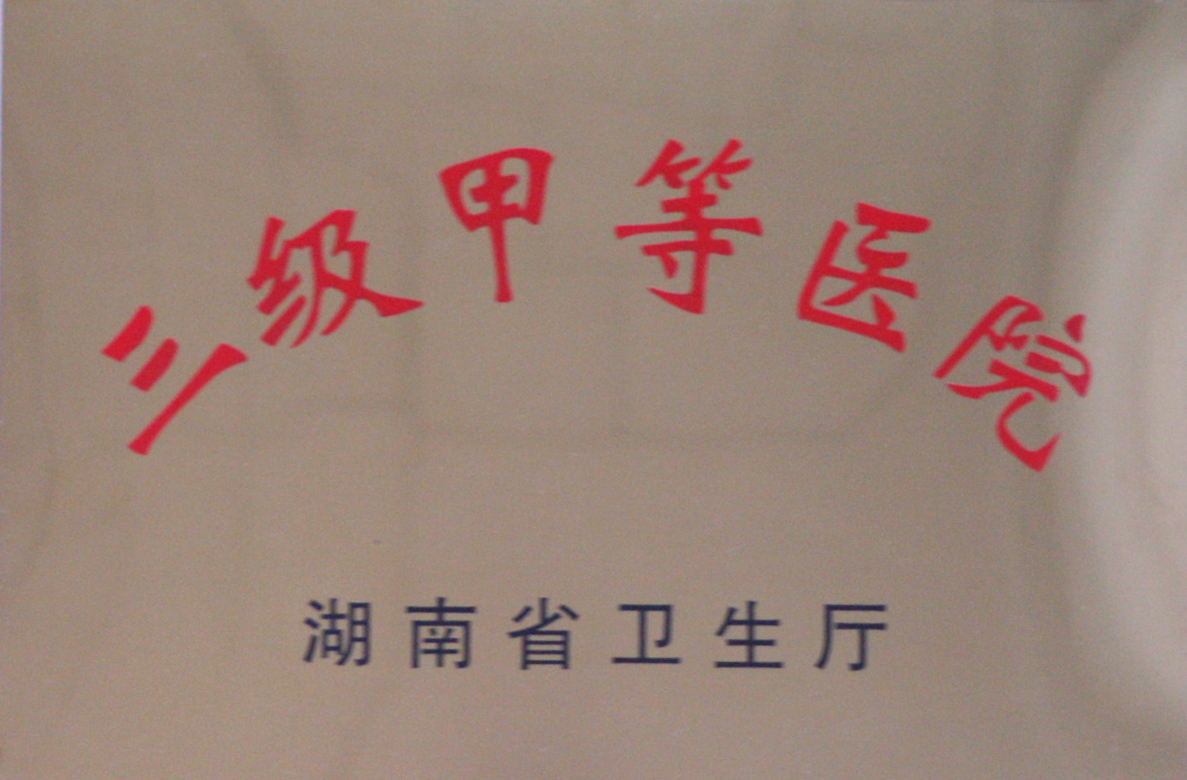 三级甲等医院
湖南省卫生厅